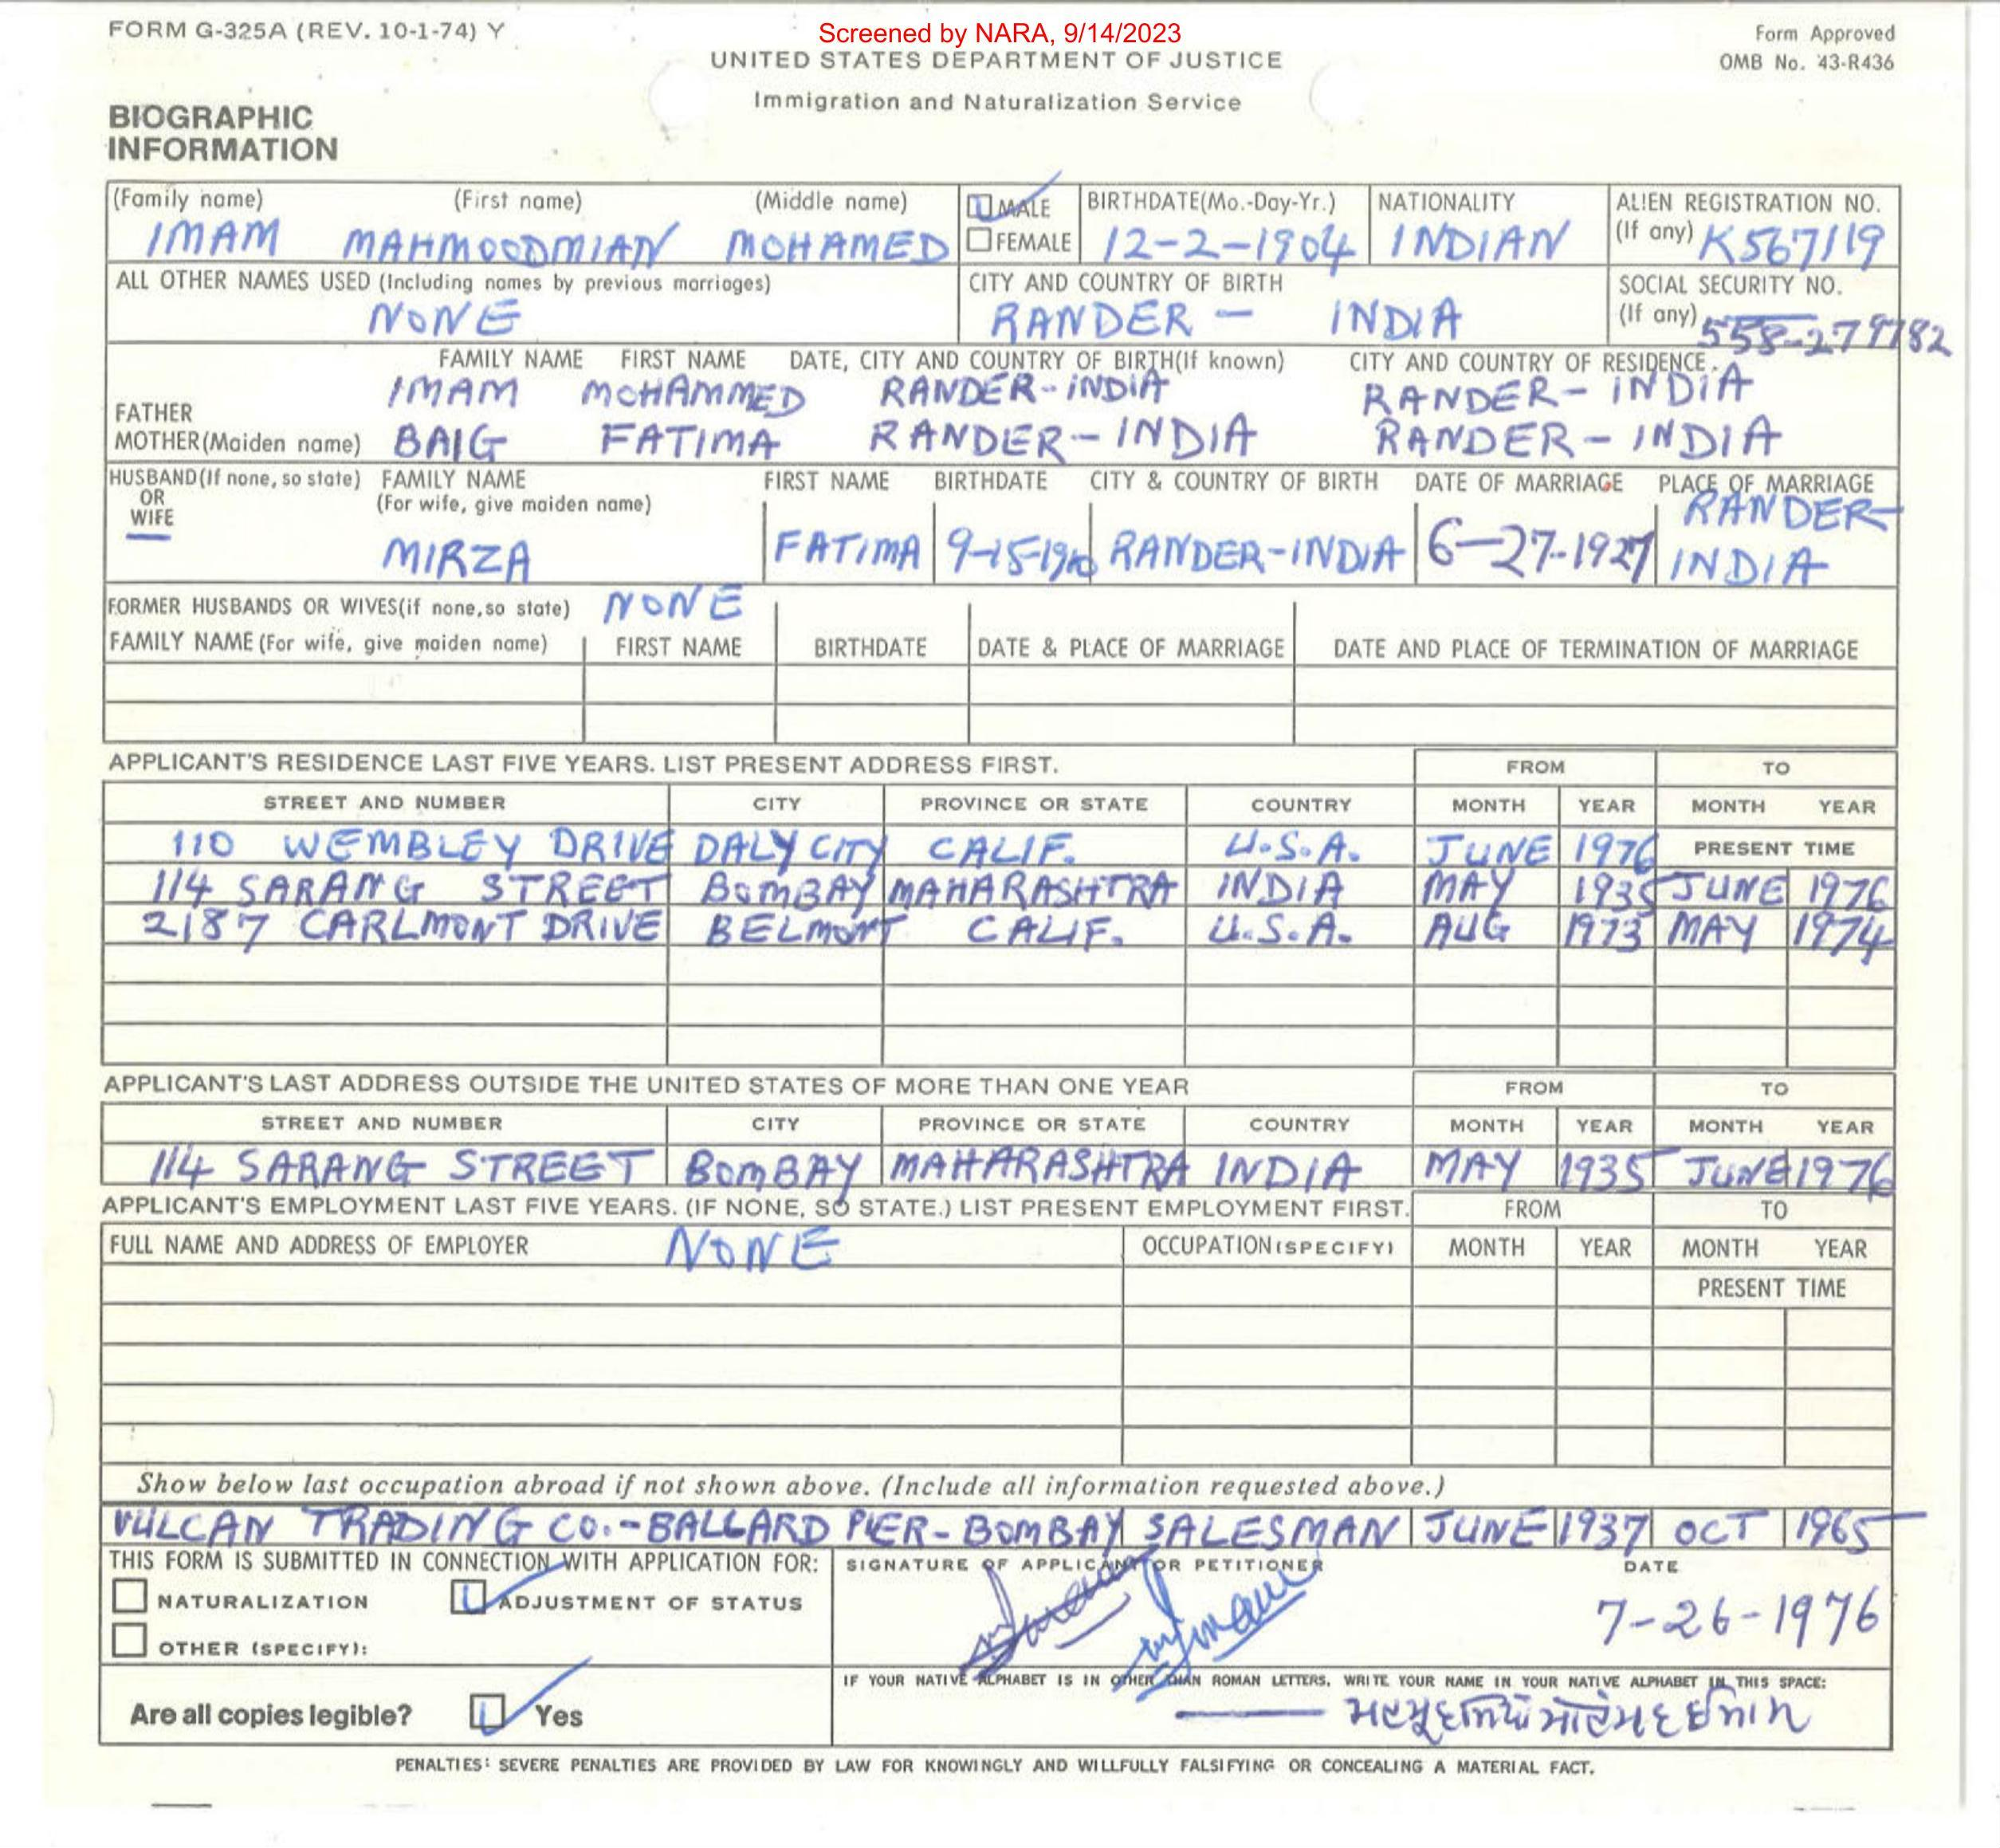 FORM G-325A (REV. 10-1-74) Y
Screened by NARA, 9/14/2023
Form Approved
OMB No. 43-R436
UNITED STATES DEPARTMENT OF JUSTICE
Immigration and Naturalization Service
BIOGRAPHIC
INFORMATION
(Family name) (First name) (Middle name) MALE BIRTHDATE(Mo.-Day-Yr.) NATIONALITY ALIEN REGISTRATION NO.
IMAM MAHMOODMIAN MOHAMED FEMALE 12-2-1904 INDIAN (If any) K567119
ALL OTHER NAMES USED (Including names by previous marriages) CITY AND COUNTRY OF BIRTH SOCIAL SECURITY NO.
NONE RANDER - INDIA (If any)
FAMILY NAME FIRST NAME DATE, CITY AND COUNTRY OF BIRTH(If known) CITY AND COUNTRY OF RESIDENCE.
FATHER IMAM MOHAMMED RANDER-INDIA RANDER-INDIA
MOTHER(Maiden name) BAIG FATIMA RANDER-INDIA RANDER-INDIA
HUSBAND(If none, so state) FAMILY NAME FIRST NAME BIRTHDATE CITY & COUNTRY OF BIRTH DATE OF MARRIAGE PLACE OF MARRIAGE
OR (For wife, give maiden name) RANDER-
WIFE
MIRZA FATIMA RANDER-INDIA 6-27-1927 INDIA
FORMER HUSBANDS OR WIVES(if none,so state) NONE
FAMILY NAME (For wife, give maiden name) FIRST NAME BIRTHDATE DATE & PLACE OF MARRIAGE DATE AND PLACE OF TERMINATION OF MARRIAGE
APPLICANT'S RESIDENCE LAST FIVE YEARS. LIST PRESENT ADDRESS FIRST. FROM TO
STREET AND NUMBER CITY PROVINCE OR STATE COUNTRY MONTH YEAR MONTH YEAR
110 WEMBLEY DRIVE DALY CITY CALIF. U.S.A. JUNE 1976 PRESENT TIME
114 SARANG STREET BOMBAY MAHARASHTRA INDIA MAY 1935 JUNE 1976
2187 CARLMONT DRIVE BELMONT CALIF. U.S.A. AUG 1973 MAY 1974
APPLICANT'S LAST ADDRESS OUTSIDE THE UNITED STATES OF MORE THAN ONE YEAR FROM TO
STREET AND NUMBER CITY PROVINCE OR STATE COUNTRY MONTH YEAR MONTH YEAR
114 SARANG STREET BOMBAY MAHARASHTRA INDIA MAY 1935 JUNE 1976
APPLICANT'S EMPLOYMENT LAST FIVE YEARS. (IF NONE, SO STATE.) LIST PRESENT EMPLOYMENT FIRST. FROM TO
FULL NAME AND ADDRESS OF EMPLOYER NONE OCCUPATION(SPECIFY) MONTH YEAR MONTH YEAR
PRESENT TIME
Show below last occupation abroad if not shown above. (Include all information requested above.)
VULCAN TRADING CO.-BALLARD PIER-BOMBAY SALESMAN JUNE 1937 OCT 1965
THIS FORM IS SUBMITTED IN CONNECTION WITH APPLICATION FOR: SIGNATURE OF APPLICANT OR PETITIONER DATE
NATURALIZATION ADJUSTMENT OF STATUS 7-26-1976
OTHER (SPECIFY):
IF YOUR NATIVE ALPHABET IS IN OTHER THAN ROMAN LETTERS, WRITE YOUR NAME IN YOUR NATIVE ALPHABET IN THIS SPACE:
Are all copies legible? Yes
PENALTIES: SEVERE PENALTIES ARE PROVIDED BY LAW FOR KNOWINGLY AND WILLFULLY FALSIFYING OR CONCEALING A MATERIAL FACT.